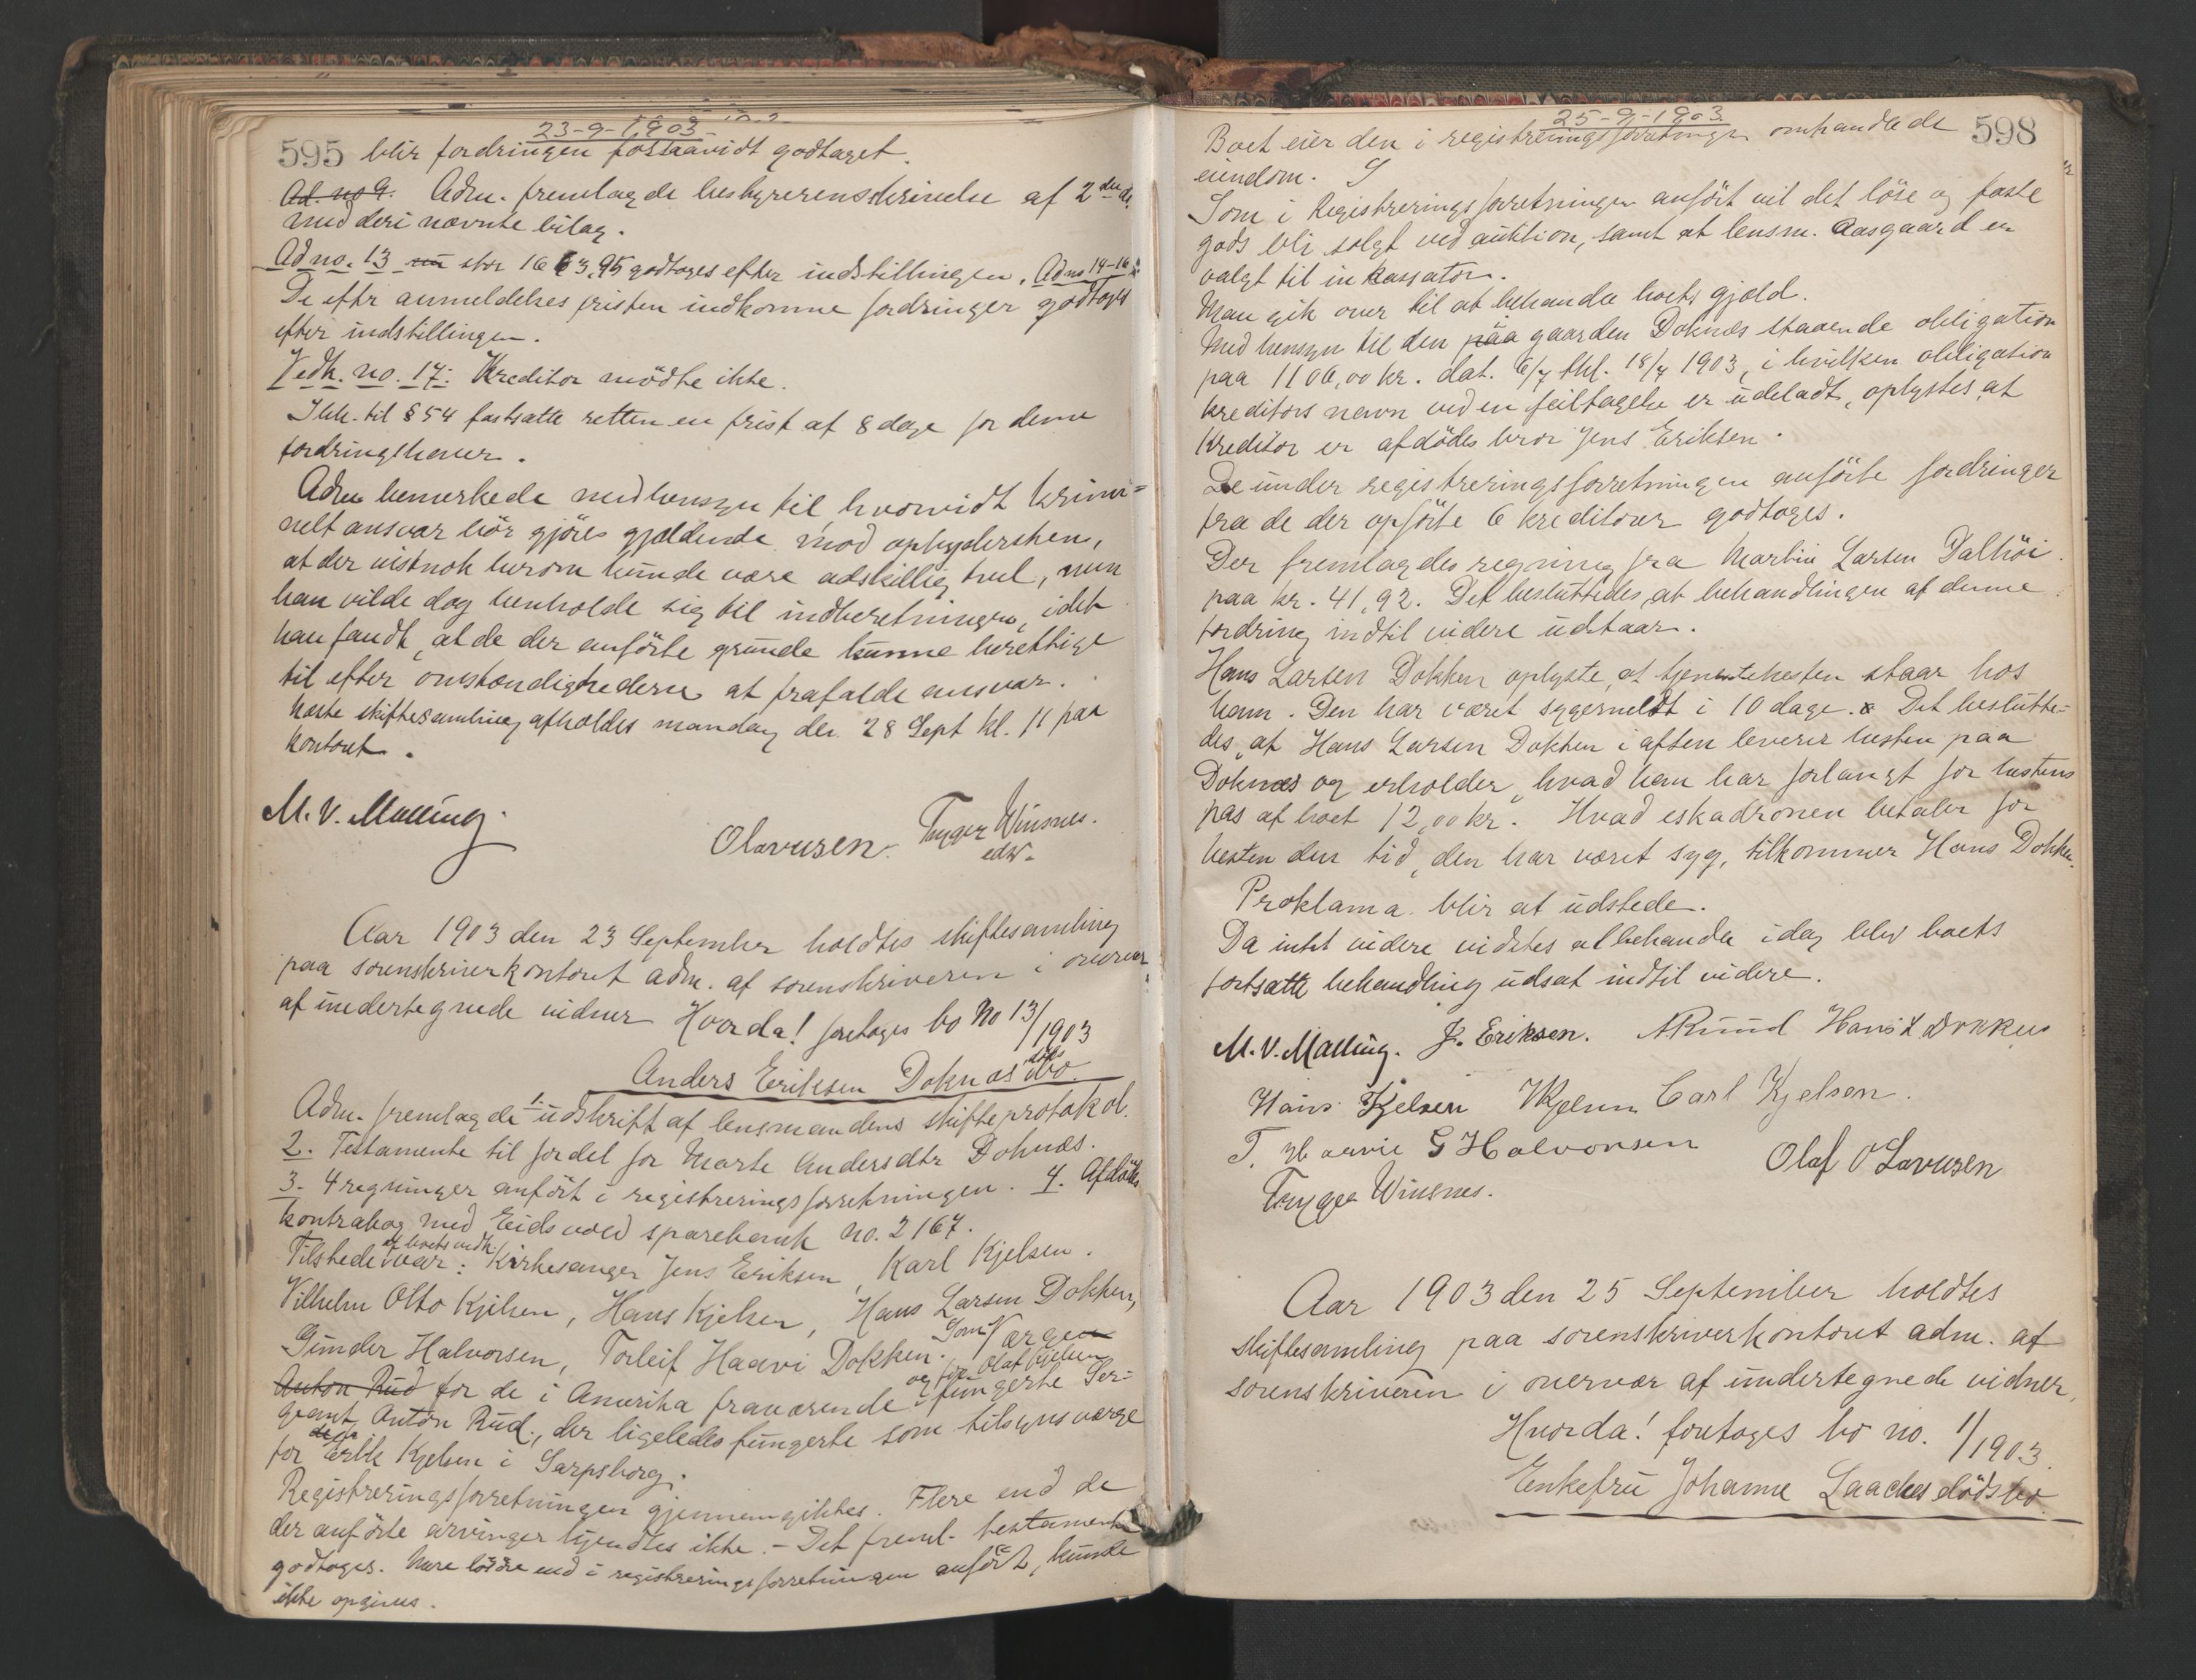 23-9-1903
595 blir fordringen forsaavidt godtaget.
Ad. no 9. Adm. fremlagde bestyrerens skrivelse af 2den ds.
med deri nævnte bilag.
Ad no. 13 stor 1663,95 godtoges efter indstillingen. Ad no 14-16:
De efter anmeldelses fristen indkomne fordringer godtoges
efter indstillingen.
Vedk. no. 17: Kreditor mödte ikke.
Ihh. til § 54 fastsatte retten en frist af 8 dage for denne
fordringshaver.
Adm bemerkede med hensyn til, hvorvidt krimi-
nelt ansvar bör gjöres gjældende mod opbydersken,
at der vistnok herom kunde være adskillig tvil, men
han vilde dog henholde sig til indberetningen, idet
han fandt, at de der anförte grunde kunne berettige
til efter omstændighederne at frafalde ansvar.
Næste skiftesamling afholdes mandag den 28 Sept kl. 11 paa
kontoret.
M. V. Malling.
Olavusen. Trygve Winsnes.
edsv.
Aar 1903 den 23 September holdtes skiftesamling
paa sorenskriverkontoret adm. af sorenskriveren i overvær
af undertegnede vidner Hvorda! foretoges bo No 13/1903
Anders Eriksen Doknæs döds bo.
Adm. fremlagde 1. udskrift af lensmandens skifteprotokol.
2. Testamente til fordel for Marte Andersdtr Doknæs.
3. 4 regninger anfört i registreringsforretningen. 4. Afdödes
kontrabog med Eidsvold sparebank no. 2167.
Tilstede af boets vedk. var: Kirkesanger Jens Eriksen, Karl Kjelsen.
Vilhelm Otto Kjelsen, Hans Kjelsen, Hans Larsen Dokken,
Gunder Halvorsen, Torleif Haavi Dokken. Som Værge
Anton Rud for de i Amerika fraværende og for Olaf Kjelsen fungerte Ser-
geant Anton Rud, der ligeledes fungerte som tilsynsværge
for Kjelsen i Sarpsborg.
Registreringsforretningen gjennemgikkes. Flere end de
der anförte arvinger kjendtes ikke. - Det freml. testamente
godtoges. Mere lösöre end i registreringsforretningen anfört, kunde
ikke opgives.
25-9-1903
598
Boet eier den i registreringsforretningen omhandlede
eiendom.
Som i Registreringsforretningen anfört vil det löse og faste
gods bli solgt ved auktion, samt at lensm. Aasgaard er
valgt til inkassator.
Man gik over til at behandle boets gjæld.
Med hensyn til den paa gaarden Doknæs staaende obligation
paa 1100,00 kr. dat. 6/7 thl. 18/7 1903, i hvilken obligation
kreditors navn ved en feiltagelse er udeladt, oplystes, at
Kreditor er afdödes bror Jens Eriksen.
De under registreringsforretningen anförte fordringer
fra de der opförte 6 kreditorer godtoges.
Der fremlagdes regning fra Martin Larsen Dalhöi
paa kr. 41,92. Det besluttedes, at behandlingen af denne
fordring indtil videre udstaar.
Hans Larsen Dokken oplyste, at tjenestehesten staar hos
ham. Den har været sygemeldt i 10 dage. Det beslutte-
des, at Hans Larsen Dokken i aften leverer hesten paa
Doknæs og erholder, hvad han har forlangt for hestens
pas af boet 12,00 kr. Hvad eskadronen betaler for
hesten den tid, den har været syg, tilkommer Hans Dokken.
Proklama blir at udstede.
Da intet videre vidstes at behandle idag blev boets
fortsatte behandling udsat indtil videre.
M. V. Malling. J. Eriksen. A Ruud Hans L Dokken
Hans Kjelsen VKjelsen Carl Kjelsen.
T. Haavie G Halvorsen
Olaf Olavusen
Trygve Winsnes.
Aar 1903 den 25 September holdtes
skiftesamling paa sorenskriverkontoret adm. af
sorenskriveren i overvær af undertegnede vidner,
Hvorda! foretoges bo no. 1/1903.
Enkefru Johanne Laaches dödsbo